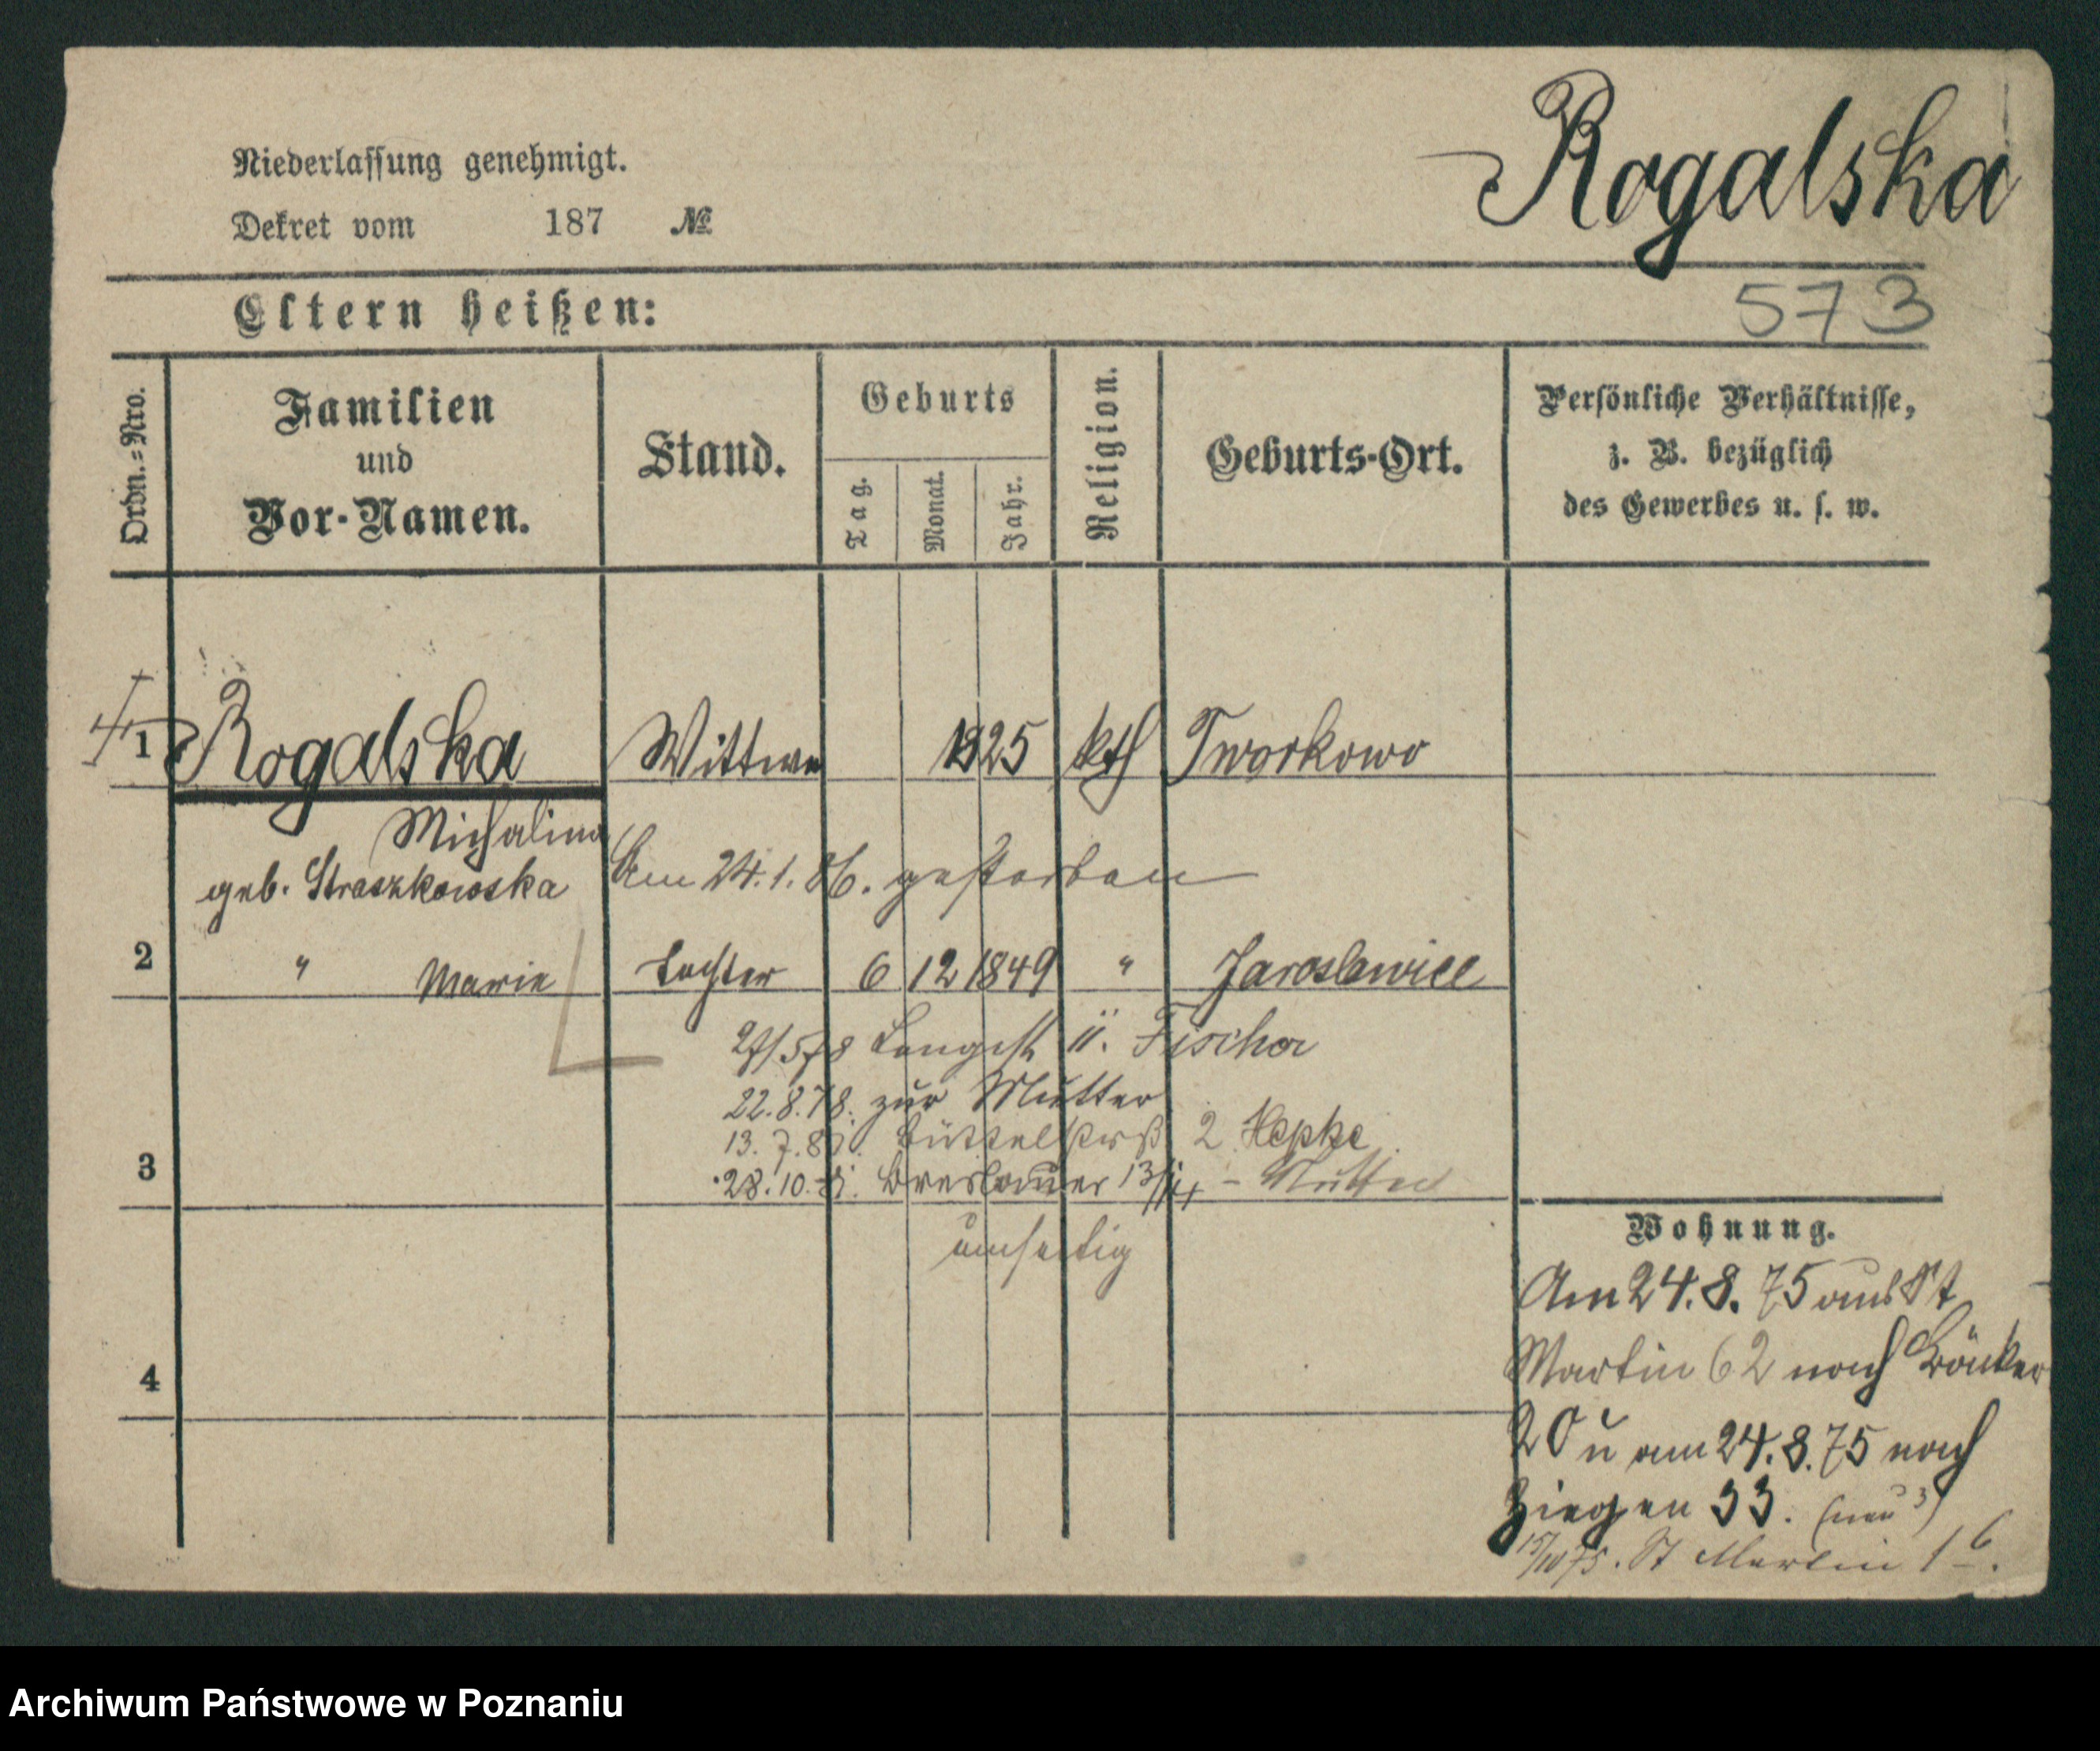 Rogalska
Niederlassung genehmigt.
Dekret vom 187 №
Eltern heißen:
573
Ordn.-Nro.
Familien
und
Vor-Namen.
Stand.
Geburts
Tag.
Monat.
Jahr.
Religion.
Geburts-Ort.
Persönliche Verhältnisse,
z. B. bezüglich
des Gewerbes u. s. w.
1 Rogalska Wittwe 1825 kth Tworkowo
Michalina
geb. Straszkowska
Am 24.1.86. gestorben
2 " Marie Tochter 6 12 1849 " Jaroslawice
27/5 78 Langestr 11. Fischer
22.8.78. zur Mutter
13. 7. 2 Hepke
3
28.10. Breslauer 13/14 - Mutter
umseitig
4
Wohnung.
Am 24.8.75 aus St
Martin 62 nach Bäcker
20 u am 24.8.75 nach
Ziegen 33. (neu 3)
15/10 75. St Martin 16.
Archiwum Państwowe w Poznaniu